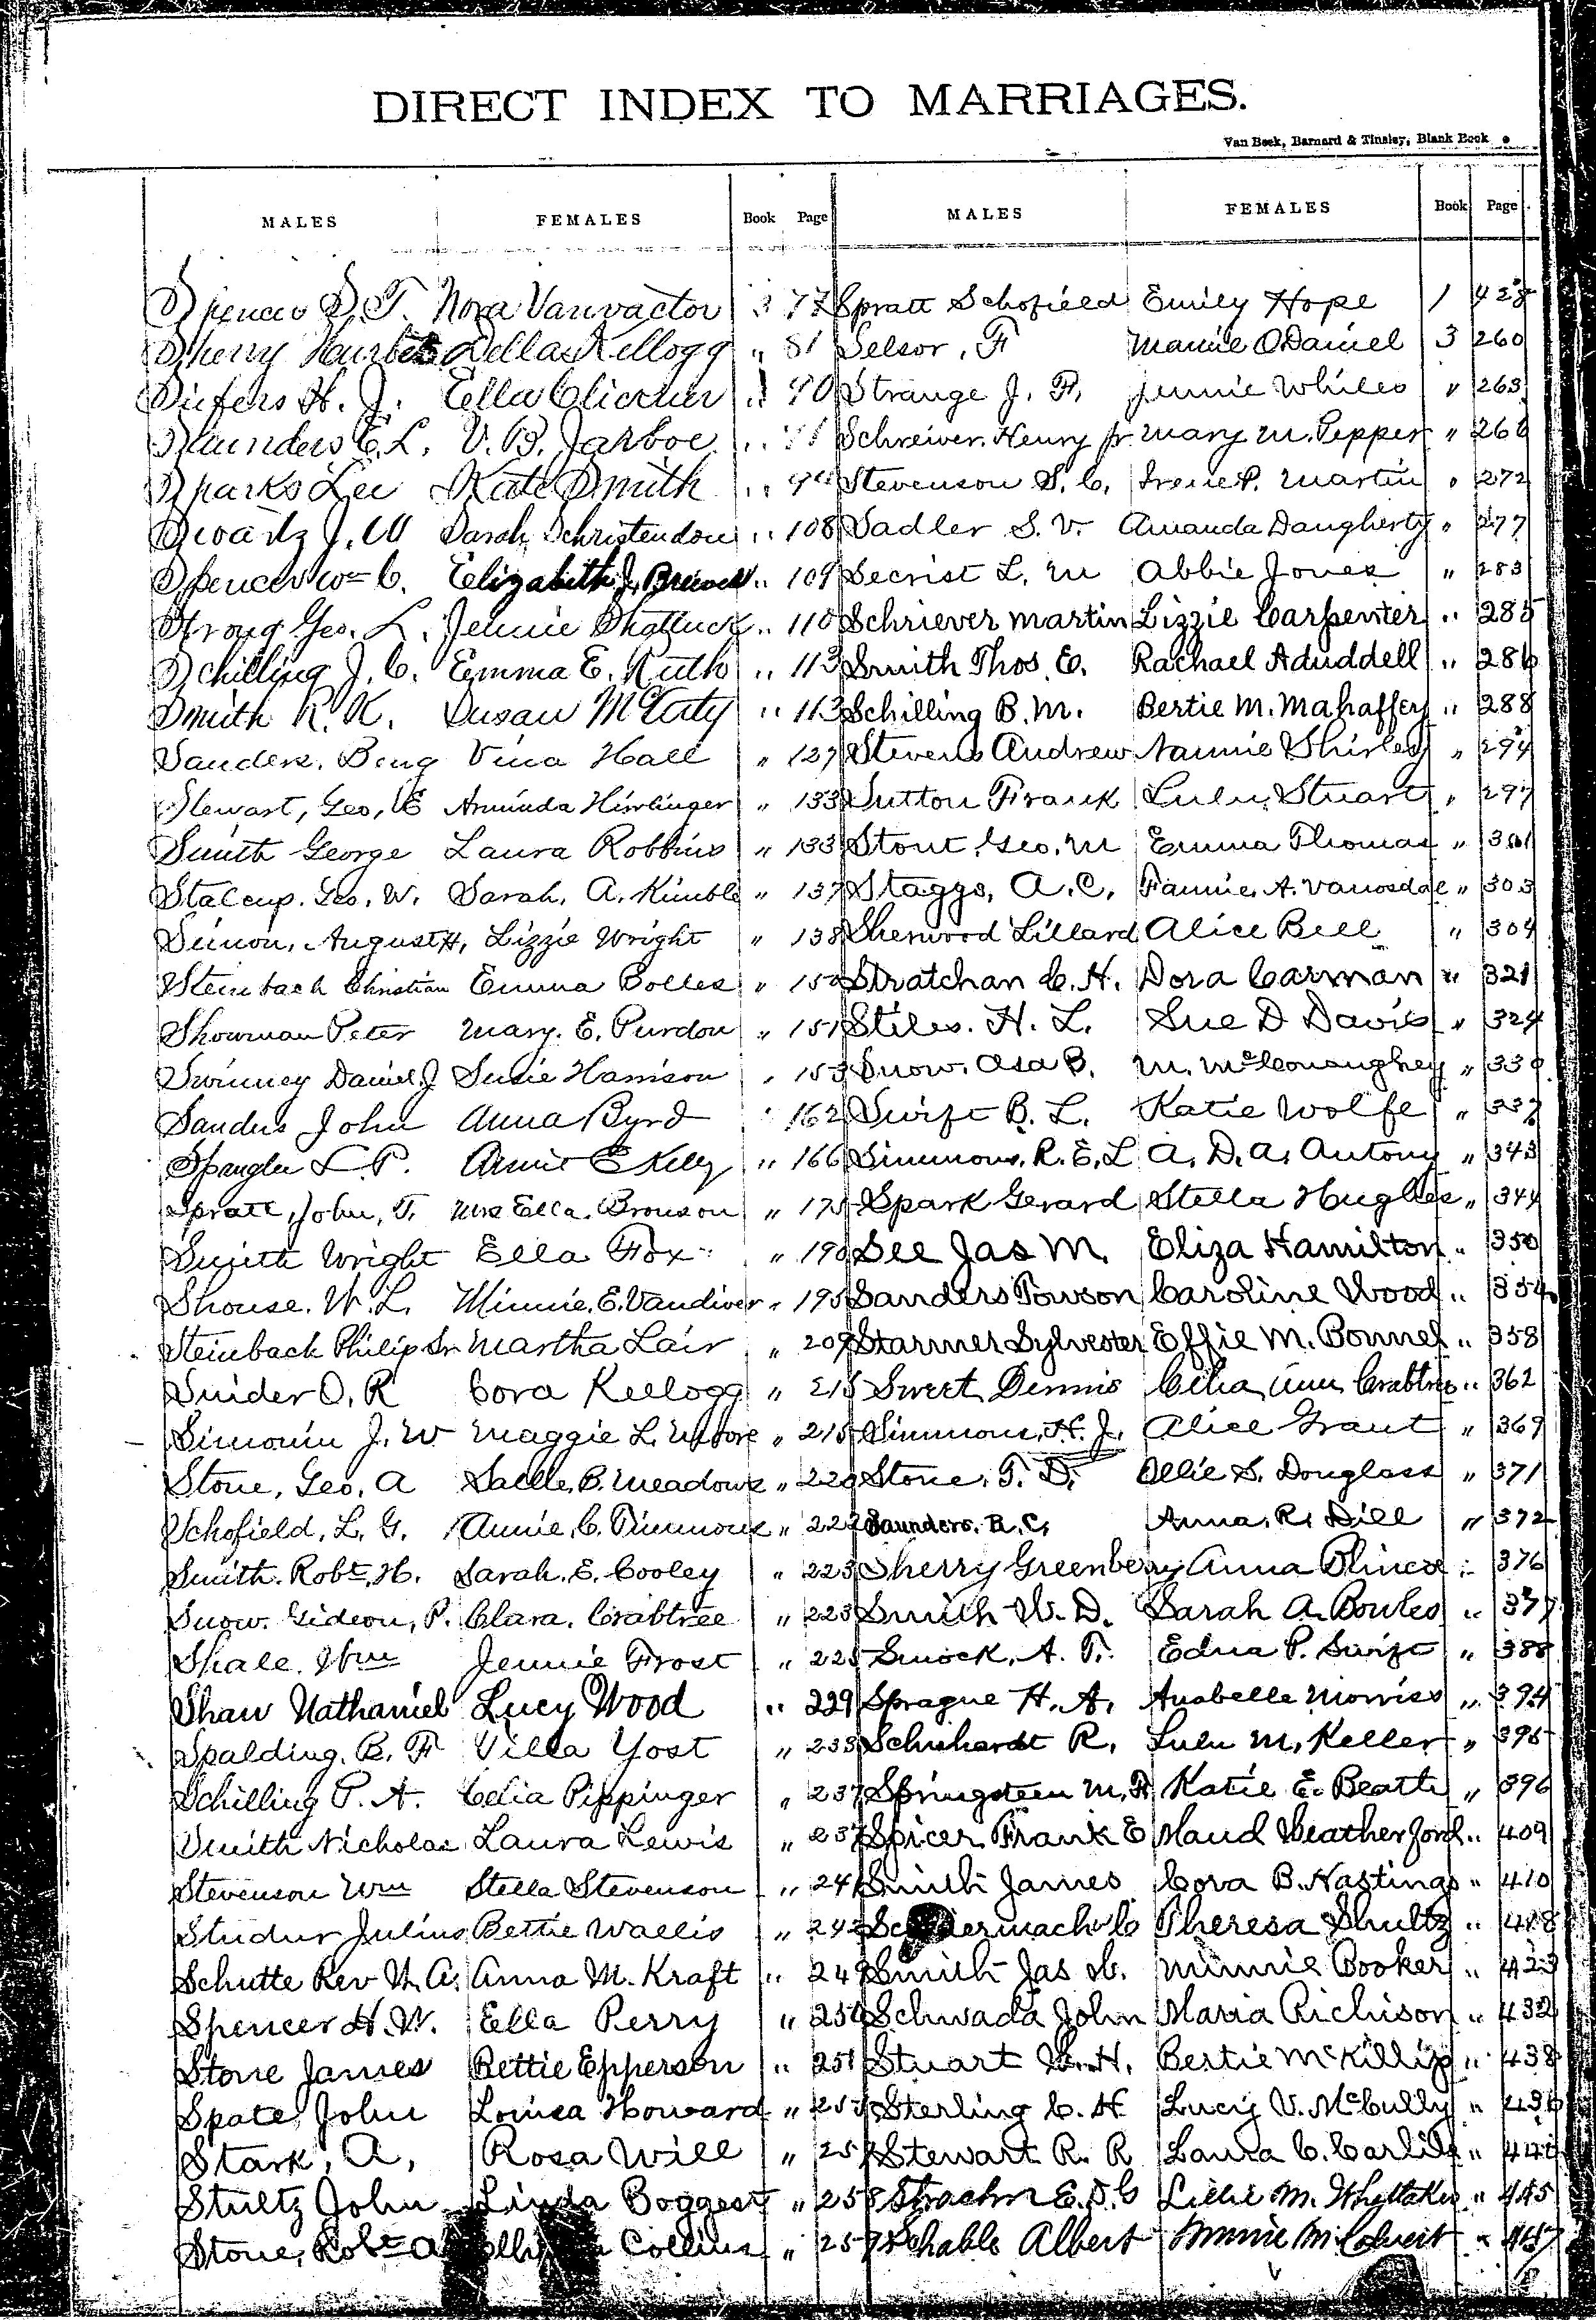 DIRECT INDEX TO MARRIAGES.
Van Beek, Barnard & Tinsley, Blank Book
MALES FEMALES Book Page MALES FEMALES Book Page
Spencer S. T. Nora Vanvactor 3 77 Spratt Schofield Emily Hope 1 428
Sherry Della Kellogg " 81 Selsor, F Mamie ODaniel 3 260
H. J. Ella 90 Strange J. F. Jennie Whiles " 263
Saunders E. L. V. B. Jarboe " 91 Schreiver. Henry Jr. Mary M. Pepper " 266
Sparks Lee Kate Smith " Stevenson S. C. Irene P. Martin " 272
Swartz J. W Sarah Schristendon " 108 Sadler S. V. Amanda Daugherty " 277
Spencer Wm C. Elizabeth J. " 109 Secrist L. M Abbie Jones " 283
Strong Geo. L. Jennie Shattuck " 110 Schriever Martin Lizzie Carpenter " 285
Schilling J. C. Emma E. Ruth " 113 Smith Thos. E. Rachael Aduddell " 286
Smith R. K. Susan McCarty " 113 Schilling B. M. Bertie M. Mahaffery " 288
Sanders. Benj Vina Hall " 127 Stevens Andrew Nannie Shirley " 294
Stewart, Geo, E Arminda Hirrlinger " 133 Sutton Frank Lulu Stuart " 297
Smith George Laura Robbins " 133 Stout, Geo. M Emma Thomas " 301
Stalcup. Geo. W. Sarah, A. Kimble " 137 Staggs, A. C. Fannie. A. Vanosdal " 303
Simon, August H, Lizzie Wright " 138 Sherwood Lillard Alice Bell " 304
Steinbach Christian Emma Bolles " 150 Stratchan C. H. Dora Carman " 321
Showman Peter Mary. E. Purdon " 151 Stiles. H. L. Sue D Davis " 324
Swinney Daniel J Susie Harrison " 153 Snow. Asa B. M. McConaughey " 330
Sanders John Anna Byrd " 162 Swift B. L. Katie Wolfe " 337
Spangler L. P. Annie E Kelly " 166 Simmons. R. E. L A. D. A. Antony " 343
Spratt, John, T. Mrs Ella. Bronson " 175 Spark Gerard Stella Hughes " 344
Smith Wright Ella Fox " 190 See Jas M. Eliza Hamilton " 350
Shouse. W. L. Minnie. E. Vandiver " 195 Sanders Towson Caroline Wood " 354
Steinback Philip Sr Martha Lair " 209 Starmer Sylvester Effie M. Bonnel " 358
Snider O. R Cora Kellogg " 215 Sweet Dennis Celia Ann Crabtree " 362
Simonin J. W Maggie L. Moore " 215 Simmons, H. J. Alice Grant " 369
Stone, Geo. A Sallie. B. Meadows " 220 Stone. T. D. Ollie S. Douglass " 371
Schofield, L. G. Annie. C. Timmons " 222 Saunders. R. C. Anna. R. Dill " 372
Smith. Robt. H. Sarah. E. Cooley " 223 Sherry Greenberry Anna " 376
Snow. Gideon, P. Clara. Crabtree " 223 Smith W. D. Sarah A. Bowles " 377
Shale. Wm Jennie Frost " 225 Smock, A. T. Edna P. Swift " 388
Shaw Nathaniel Lucy Wood " 229 Sprague H. A. Anabelle Morriss " 394
Spalding. B. F Villa Yost " 233 Schuhardt R. Lulu M. Keller " 395
Schilling P. A. Celia Pippinger " 237 Springsteen M. F Katie E. Beatti " 396
Smith Nicholas Laura Lewis " 237 Spicer Frank E Maud Weatherford " 409
Stevenson Wm Stella Stevenson " 241 Smith James Cora B. Hastings " 410
Studer Julius Bettie Wallis " 242 C Theresa Shultz " 418
Schutte Rev H. A. Anna M. Kraft " 249 Smith Jas M. Minnie Booker " 423
Spencer H. W. Ella Perry " 250 Schwada John Maria Richison " 432
Stone James Bettie Epperson " 251 Stuart H. Bertie McKillip " 438
Spate John Louisa Howard " Sterling C. H Lucy V. McCully " 436
Stark, A, Rosa Will " 257 Stewart R. R Laura C. Carlile " 440
Stultz John Linda Boggess " 258 Strachn E. D. C Lillie M. Whittaker " 445
Stone, Robt A Collins " 259 Schable Albert Minnie M. " 457